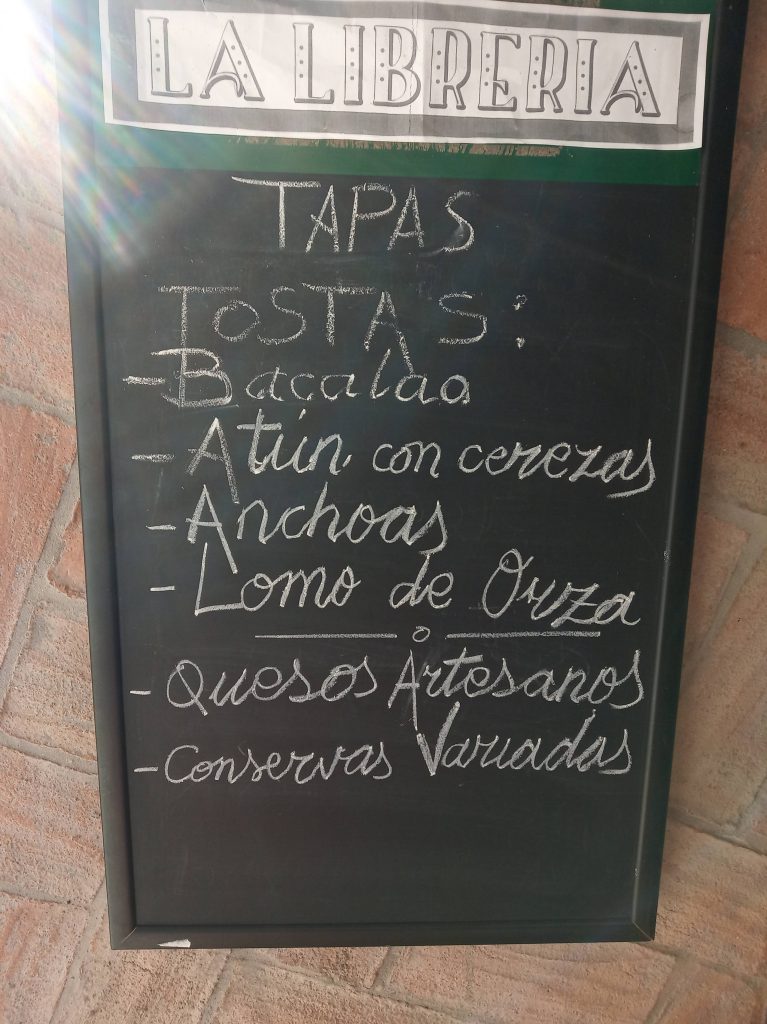 LA LIBRERIA
TAPAS
TOSTAS:
- Bacalao
- Atún con cerezas
- Anchoas
- Lomo de Orza
o
- Quesos Artesanos
- Conservas Variadas